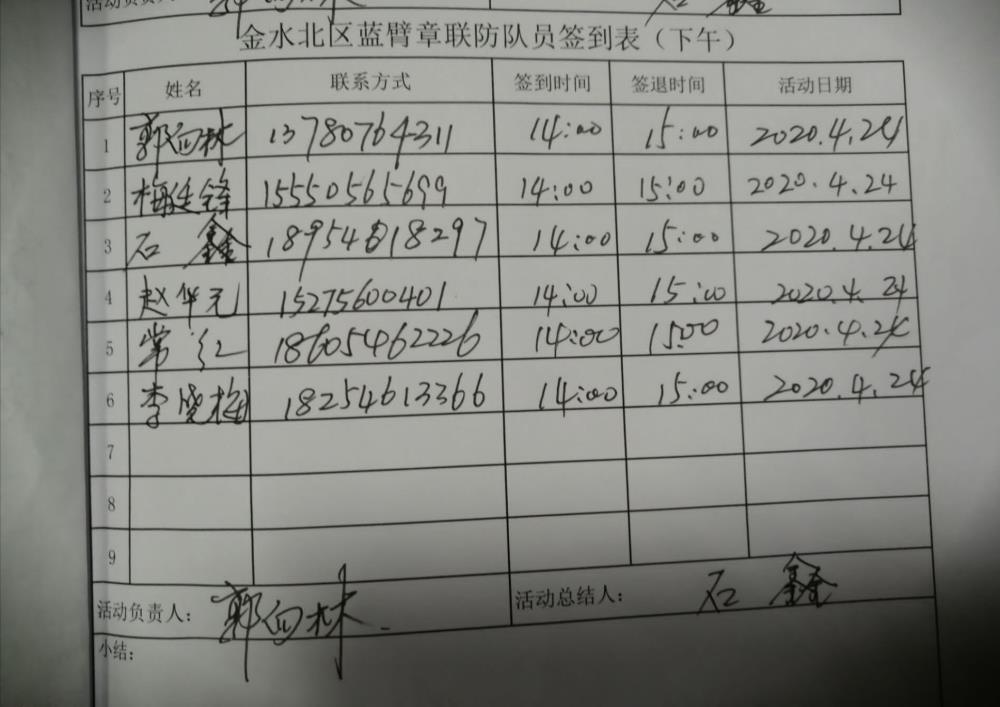 活动负责人：
石 鑫
金水北区蓝臂章联防队员签到表（下午）
序号 姓名 联系方式 签到时间 签退时间 活动日期
1 郭向林 13780764311 14:00 15:00 2020.4.24
2 梅廷锋 15550565699 14:00 15:00 2020.4.24
3 石鑫 18954818297 14:00 15:00 2020.4.24
4 赵华元 15275600401 14:00 15:00 2020.4.24
5 常红 18605462226 14:00 15:00 2020.4.24
6 李晓梅 18254613366 14:00 15:00 2020.4.24
7
8
9
活动负责人： 郭向林 活动总结人： 石 鑫
小结：